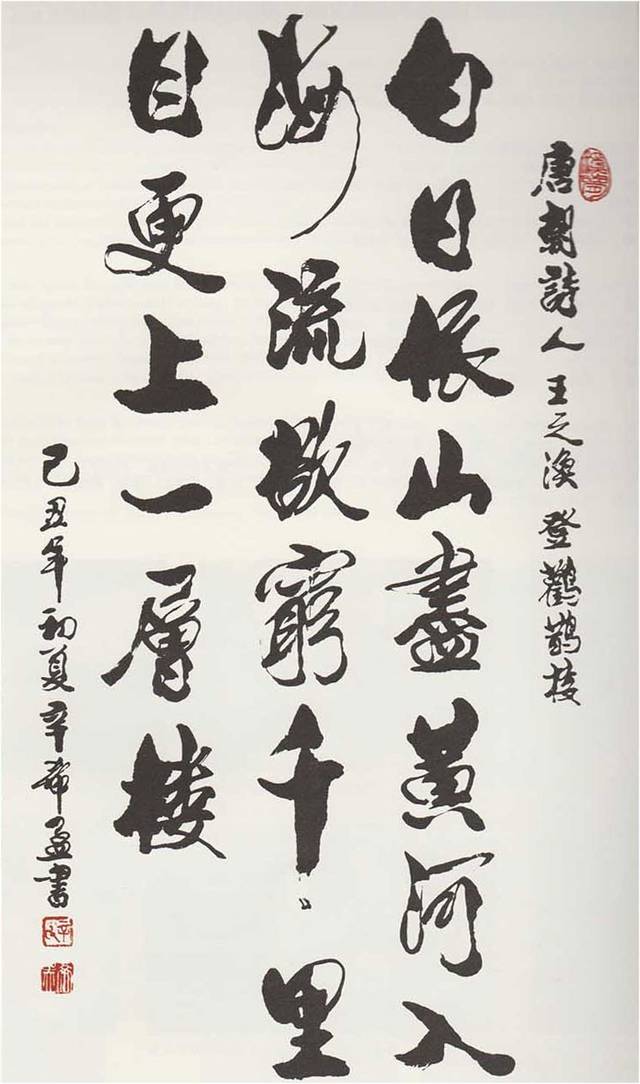 唐朝詩人王之渙登鸛鵲楼
白日依山盡黄河入
海流欲窮千里
目更上一層楼
己丑年初夏辛希孟書